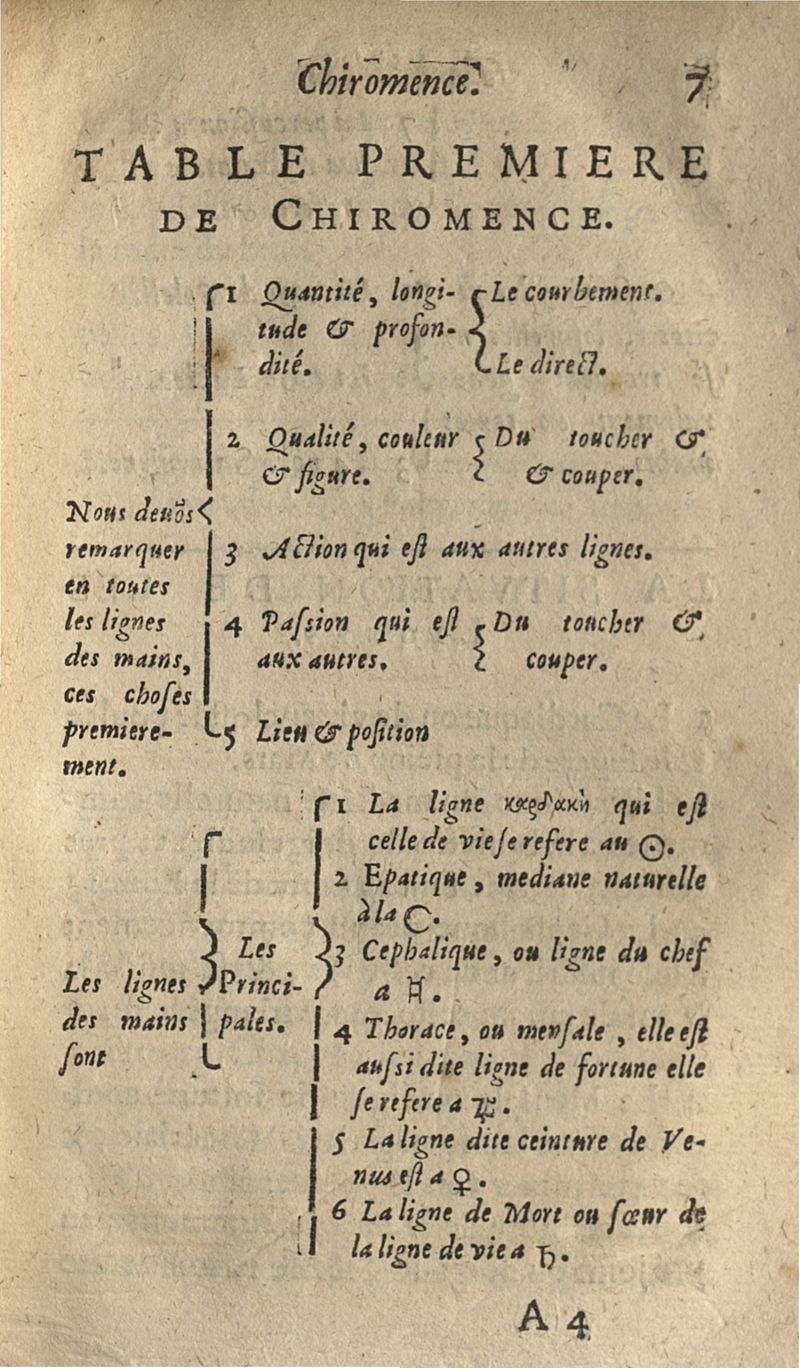 Chiromence. 7
TABLE PREMIERE
DE CHIROMENCE.
1 Quantité, longi-
tude & profon-
dité.
Le courbement.
Le direct.
2 Qualité, couleur
& figure.
Du toucher &
& couper.
Nous deuõs
remarquer
en toutes
les lignes
des mains,
ces choſes
premiere-
ment.
3 Action qui eſt aux autres lignes.
4 Paſsion qui eſt
aux autres.
Du toucher &
couper.
5 Lieu & poſition
Les lignes
des mains
ſont
Les
Princi-
pales.
1 La ligne καρδιακὴ qui eſt
celle de vie ſe refere au ☉.
2 Epatique, mediane naturelle
à la ☾.
3 Cephalique, ou ligne du chef
a ♓.
4 Thorace, ou menſale, elle eſt
auſsi dite ligne de fortune elle
ſe refere a ♃.
5 La ligne dite ceinture de Ve-
nus eſt a ♀.
6 La ligne de Mort ou ſœur de
la ligne de vie a ♄.
A 4